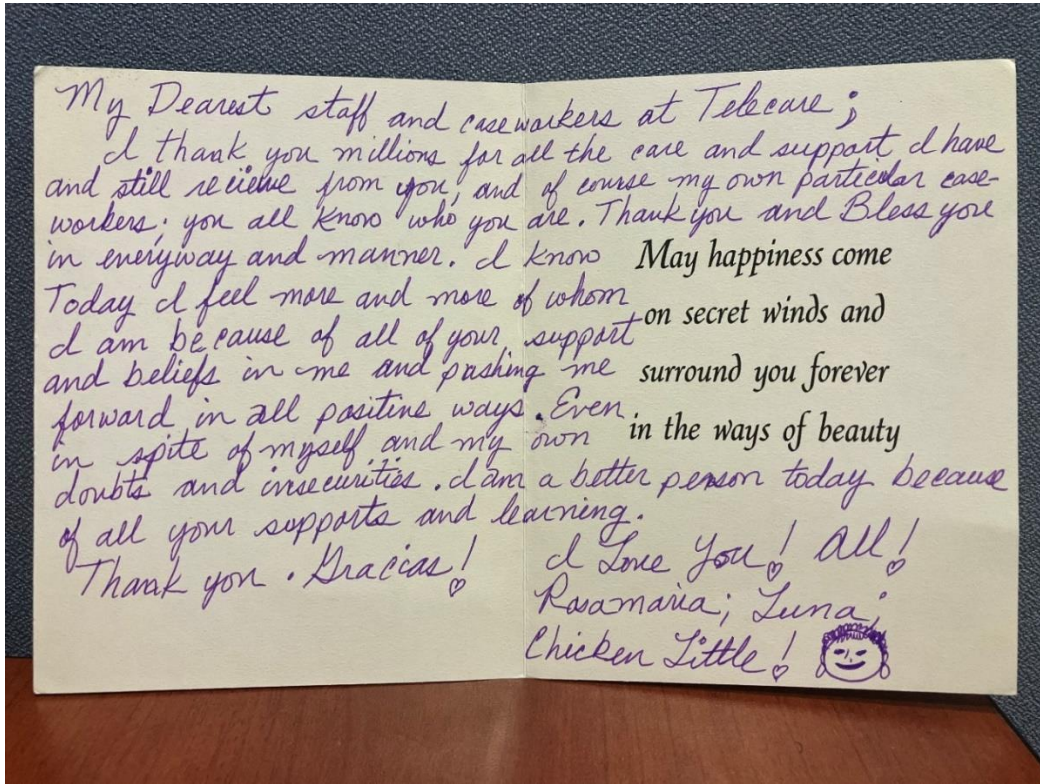 My Dearest staff and caseworkers at Telecare;
I thank you millions for all the care and support I have
and still recieve from you, and of course my own particular case-
workers; you all know who you are. Thank you and Bless you
in everyway and manner. I know
Today I feel more and more of whom
I am because of all of your support
and beliefs in me and pushing me
forward in all positive ways. Even
in spite of myself and my own
doubts and insecurities. I am a better person today because
of all your supports and learning.
Thank you. Gracias!
May happiness come
on secret winds and
surround you forever
in the ways of beauty
I Love You! All!
Rosamaria; Luna;
Chicken Little!